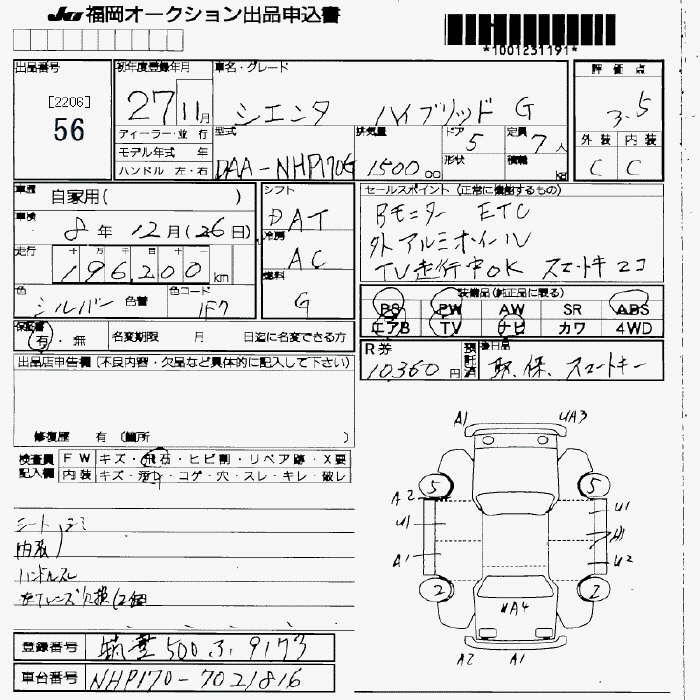 JU 福岡オークション出品申込書
*1001231191*
出品番号 [2206] 56
初年度登録年月 27 11月
車名・グレード シエンタ ハイブリッド G
評価点 3.5
外装 C 内装 C
ディーラー・並行
モデル年式 年
ハンドル 左・右
型式 DAA-NHP170G
排気量 1500 cc
ドア 5
形状
定員 7人
積載 kg
車歴 自家用( )
車検 8年 12月(26日)
走行 十 万 千 百 十 一 196,200 km
色 シルバー 色替
色コード 1F7
シフト DAT
冷房 AC
燃料 G
セールスポイント(正常に機能するもの)
Bモニター ETC
外アルミホイール
TV走行中OK スマートキー2コ
装備品(純正品に限る)
PS PW AW SR ABS
エアB TV ナビ カワ 4WD
保証書 有・無
名変期限 月 日迄に名変できる方
R券 10,360円 預託済
後日品 取、保、スマートキー
出品店申告欄(不良内容・欠品など具体的に記入して下さい)
修復歴 有(箇所 )
検査員記入欄
FW キズ・飛石・ヒビ割・リペア跡・X要
内装 キズ・汚レ・コゲ・穴・スレ・キレ・破レ
シート シミ
内張
ハンドルスレ
A1 UA3
5 5
A2 U1
U1 A1
A1 U2
2 2
UA4
A2 A1
登録番号 筑豊 500 ふ 9173
車台番号 NHP170-7021816